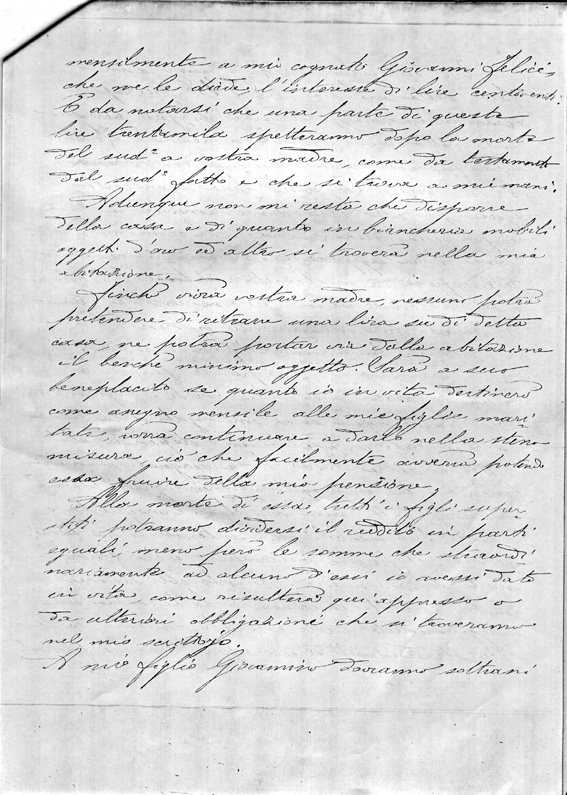 mensilmente a mio cognato Giovanni Felice,
che me le diede l'interesse di lire centoventi.
È da notarsi che una parte di queste
lire trentamila spetteranno dopo la morte
del sudº a vostra madre, come da testamento
dal sudº fatto e che si trova a mie mani.
Adunque non mi resta che disporre
della casa e di quanto in biancheria mobili
oggetti d'oro ed altro si troverà nella mia
abitazione.
Finchè vivrà vostra madre, nessuno potrà
pretendere di ritrarre una lira su di detta
casa, ne potrà portar via dalla abitazione
il benchè minimo oggetto. Sarà a suo
beneplacito se quanto io in vita destinerò
come assegno mensile alle mie figlie mari
tate, vorrà continuare a darlo nella stessa
misura, ciò che facilmente avverrà potendo
essa fruire della mia pensione.
Alla morte di essa tutti i figli super
stiti potranno dividersi il reddito in parti
eguali, meno però le somme che straordi
nariamente ad alcuno d'essi io avessi dato
in vita come risulterà qui appresso o
da ulteriori obbligazioni che si troveranno
nel mio scrittojo.
A mio figlio Giovannino dovranno soltrarsi